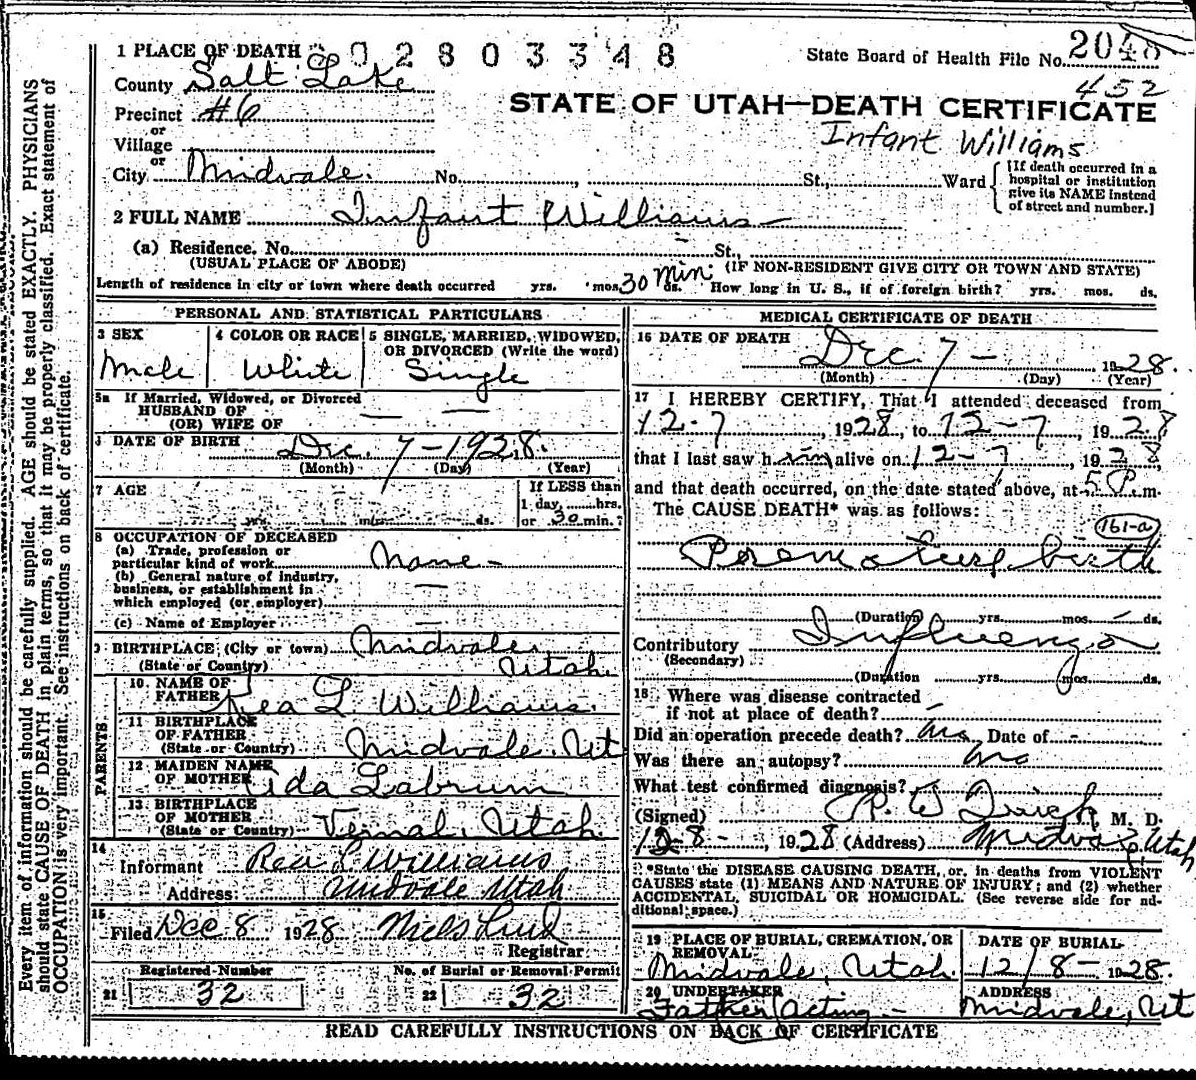 1 PLACE OF DEATH 0 2 8 0 3 3 4 8
State Board of Health File No. 2048
452
County Salt Lake
STATE OF UTAH—DEATH CERTIFICATE
Precinct #6
or
Village
Infant Williams
or
City Midvale. No. , St., Ward
[If death occurred in a hospital or institution give its NAME instead of street and number.]
2 FULL NAME Infant Williams
(a) Residence. No. St.,
(USUAL PLACE OF ABODE) (IF NON-RESIDENT GIVE CITY OR TOWN AND STATE)
Length of residence in city or town where death occurred yrs. mos. 30 min. ds. How long in U. S., if of foreign birth? yrs. mos. ds.
PERSONAL AND STATISTICAL PARTICULARS
3 SEX
Male
4 COLOR OR RACE
White
5 SINGLE, MARRIED, WIDOWED,
OR DIVORCED (Write the word)
Single
5a If Married, Widowed, or Divorced
HUSBAND OF
(OR) WIFE OF
— —
6 DATE OF BIRTH Dec. 7 - 1928.
(Month) (Day) (Year)
7 AGE
yrs. mos. ds.
If LESS than
1 day, hrs.
or 30 min.?
8 OCCUPATION OF DECEASED
(a) Trade, profession or
particular kind of work None -
(b) General nature of industry,
business, or establishment in
which employed (or employer) —
(c) Name of Employer —
9 BIRTHPLACE (City or town) Midvale,
(State or Country) Utah.
PARENTS
10 NAME OF
FATHER Rea L. Williams.
11 BIRTHPLACE
OF FATHER
(State or Country) Midvale. Ut
12 MAIDEN NAME
OF MOTHER Ada Labrum
13 BIRTHPLACE
OF MOTHER
(State or Country) Vernal, Utah
14
Informant Rea L Williams
Address Midvale Utah
15
Filed Dec 8 1928 Niels Lind
Registrar
Registered Number
21 32
No. of Burial or Removal Permit
22 32
MEDICAL CERTIFICATE OF DEATH
16 DATE OF DEATH
Dec. 7 - 1928.
(Month) (Day) (Year)
17 I HEREBY CERTIFY, That I attended deceased from
12-7, 1928, to 12-7, 1928
that I last saw him alive on 12-7, 1928
and that death occurred, on the date stated above, at 5 P. m.
The CAUSE DEATH* was as follows:
161-a
Premature birth
(Duration) yrs. mos. — ds.
Contributory Influenza
(Secondary)
(Duration yrs. mos. ds.
18 Where was disease contracted
if not at place of death? —
Did an operation precede death? No Date of -
Was there an autopsy? No
What test confirmed diagnosis?
(Signed) M. D.
12-8-, 1928 (Address) Midvale, Utah
*State the DISEASE CAUSING DEATH, or, in deaths from VIOLENT
CAUSES state (1) MEANS AND NATURE OF INJURY; and (2) whether
ACCIDENTAL, SUICIDAL OR HOMICIDAL. (See reverse side for ad-
ditional space.)
19 PLACE OF BURIAL, CREMATION, OR
REMOVAL
Midvale, Utah.
DATE OF BURIAL
12/8- 1928.
20 UNDERTAKER
Father Acting -
ADDRESS
Midvale, Ut
READ CAREFULLY INSTRUCTIONS ON BACK OF CERTIFICATE
Every item of information should be carefully supplied. AGE should be stated EXACTLY. PHYSICIANS
should state CAUSE OF DEATH in plain terms, so that it may be properly classified. Exact statement of
OCCUPATION is very important. See instructions on back of certificate.